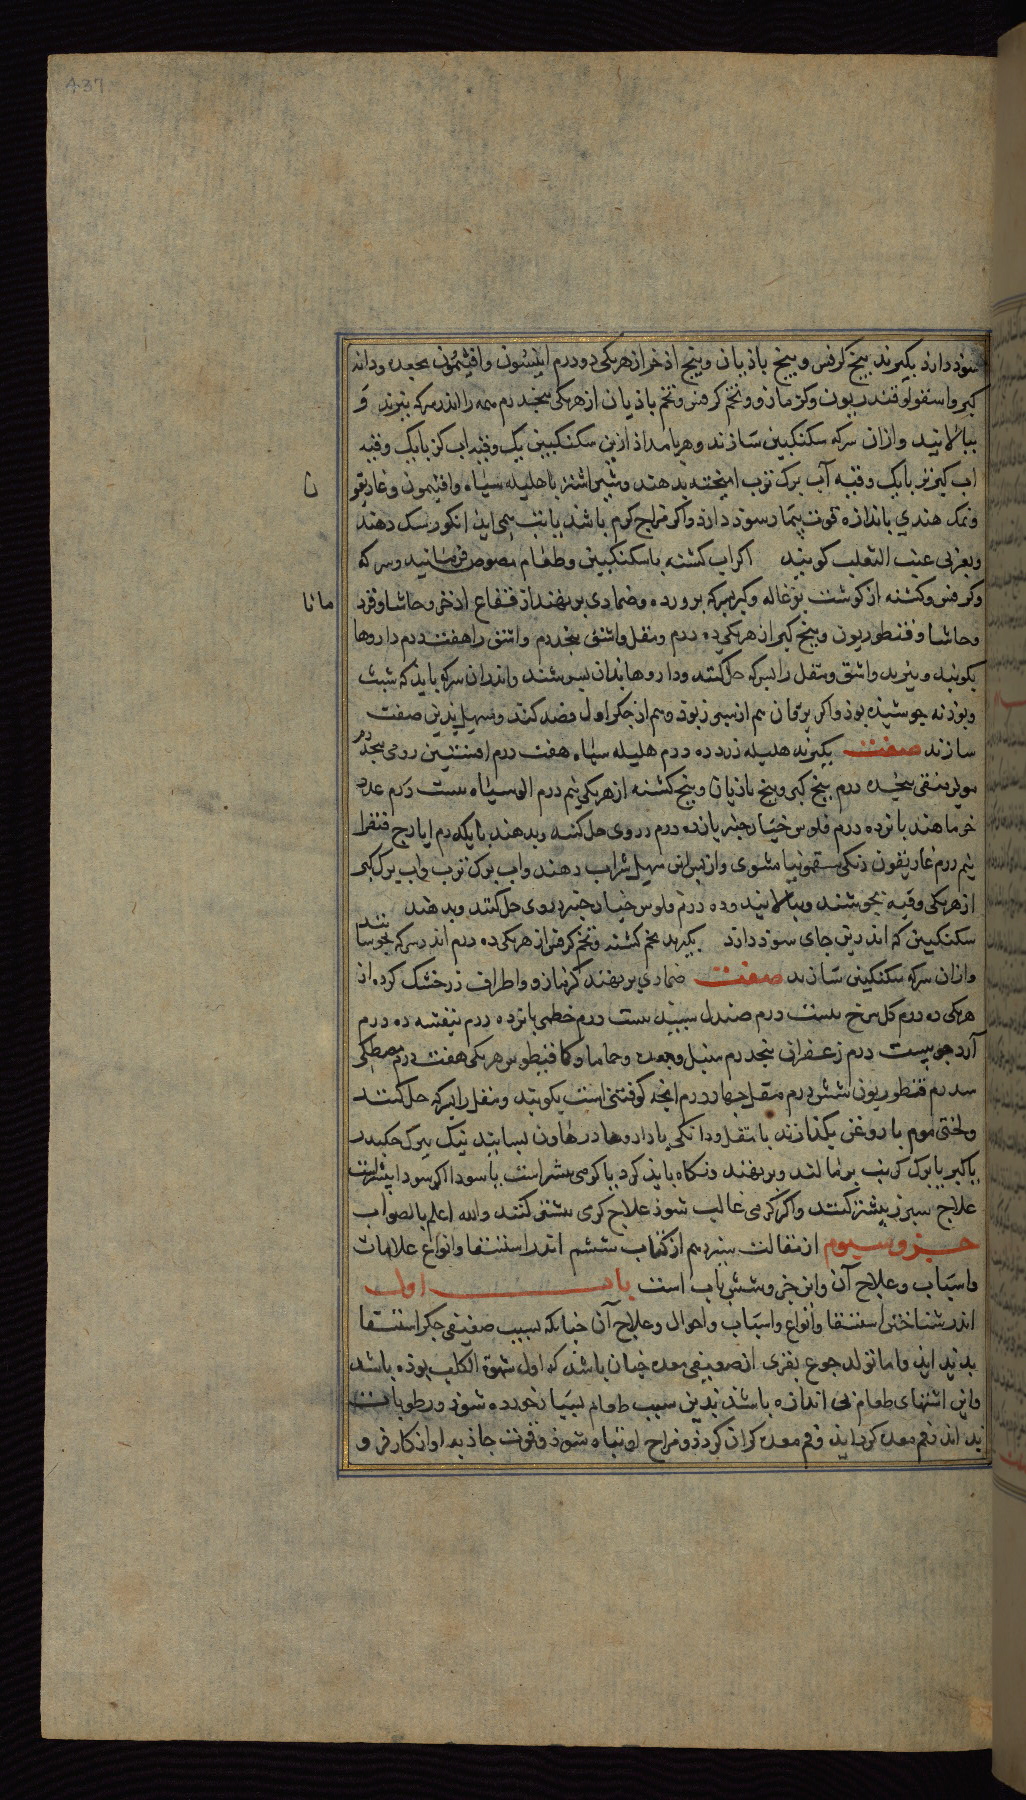 437
سوذ دارد بکیرند بیخ کرفس و بیخ باذیان و بیخ اذخر از هریکی دو درم انیسون و افتیمون و جعده و دانه
کبر و اسقولوقندریون و کزمازو و تخم کرفس و تخم باذیان از هریکی پنجدرم همه را اندر سرکه بپزند و
ببالایند و ازان سرکه سکنکبین سازند و هر بامداذ ازین سکنکبین یک وقیه اب کزر با یک وقیه
اب کشنیز با یک وقیه آب برک ترب امیخته بدهند و شیر اشتر با هلیله سیاه و افتیمون و غاریقو
ن
و نمک هندی باندازه قوت بیمار سوذ دارد و اکر مزاج کرم باشد یا تب می اید انکور سک دهند
و بعربی عنب الثعلب کویند اکر اب کشنه با سکنکبین و طعام مصوص فرمایند و سرکه
و کرفس و کشنه از کوشت بزغاله و کبر بسرکه برورده و ضمادی برنهند از فقاع اذخر و حاشا و قرد
مانا
و حاشا و قنطوریون و بیخ کبر از هریکی ده درم و مقل و اشق پنجدرم و اشق را هفت درم داروها
بکوبند و ببزند و اشق و مقل را بسرکه حل کنند و داروها بذان بسرشند و اندران سرکه بایذ که شبث
و بوذنه جوشیذه بوذ و اکر یرقان هم از سبرز بوذ و هم از جکر اول فصد کنند و مسهل بذین صفت
سازند صفت بکیرند هلیله زرد ده درم هلیله سیاه هفت درم افسنتین رومی پنجدرم
مویز منقی سیزده درم بیخ کبر و بیخ باذیان و بیخ کشنه از هریکی نیم درم الو سیاه بیست درم عدد
خرما هند پانزده درم فلوس خیارجنبر یازده درم در وی حل کنند و بدهند با یکدرم ایارج فیقرا
نیم درم غاریقون دنکی سقمونیا مشوی و از پس این مسهل شراب دهند و اب برک ترب و اب برک کبر
از هریکی وقیه بجوشند و ببالایند و ده درم فلوس خیارجنبر در وی حل کنند و بدهند
سکنکبین که اندرین جای سوذ دارذ بکیرند تخم کشنه و تخم کرفس از هریکی ده درم اندر سرکه بجوشانند
و ازان سرکه سکنکبین سازند صفت ضمادی برنهند کزمازو و اطراف زر خشک کرده از
هریکی ده درم کل سرخ بیست درم صندل سبید بیست درم خطمی پانزده درم بنفشه ده درم
آرد جو بیست درم زعفران پنجدرم سنبل و جعده و حماما و کمافیطوس هریکی هفت درم مصطکی
سدرم قنطوریون شش درم مقل جهار درم انجه کوفتنی است بکوبند و مقل را بسرکه حل کنند
و لختی موم با روغن بکذازند با مقل و دانکی با داروها در هاون بسایند نیک ببرک جکندر
یا کبر یا ببرک کرنب برمالند و برنهند و نکاه بایذ کرد با کرمی بیشتر است یا سودا اکر سودا بیشتر است
علاج سبرز بیشتر کنند و اکر کرمی غالب شوذ علاج کرمی بیشتر کنند والله اعلم بالصواب
جزو سیوم از مقالت سیزدهم از کتاب ششم اندر استسقا و انواع علامات
و اسباب و علاج آن و این جزو شش باب است باب اول
اندر شناختن استسقا و انواع و اسباب و احوال و علاج آن جنانکه بسبب ضعیفی جکر استسقا
بدید اید و اما تولد جوع بقری از ضعیفی معده جنان باشد که اول شهوة الکلب بوذه باشد
و این اشتهای طعام بی اندازه باشد بدین سبب طعام بسیار خورده شوذ و رطوبات
بد اندر فم معده کرد اید و فم معده کران کردد و مزاج او تباه شوذ و قوت جاذبه او از کار فرو